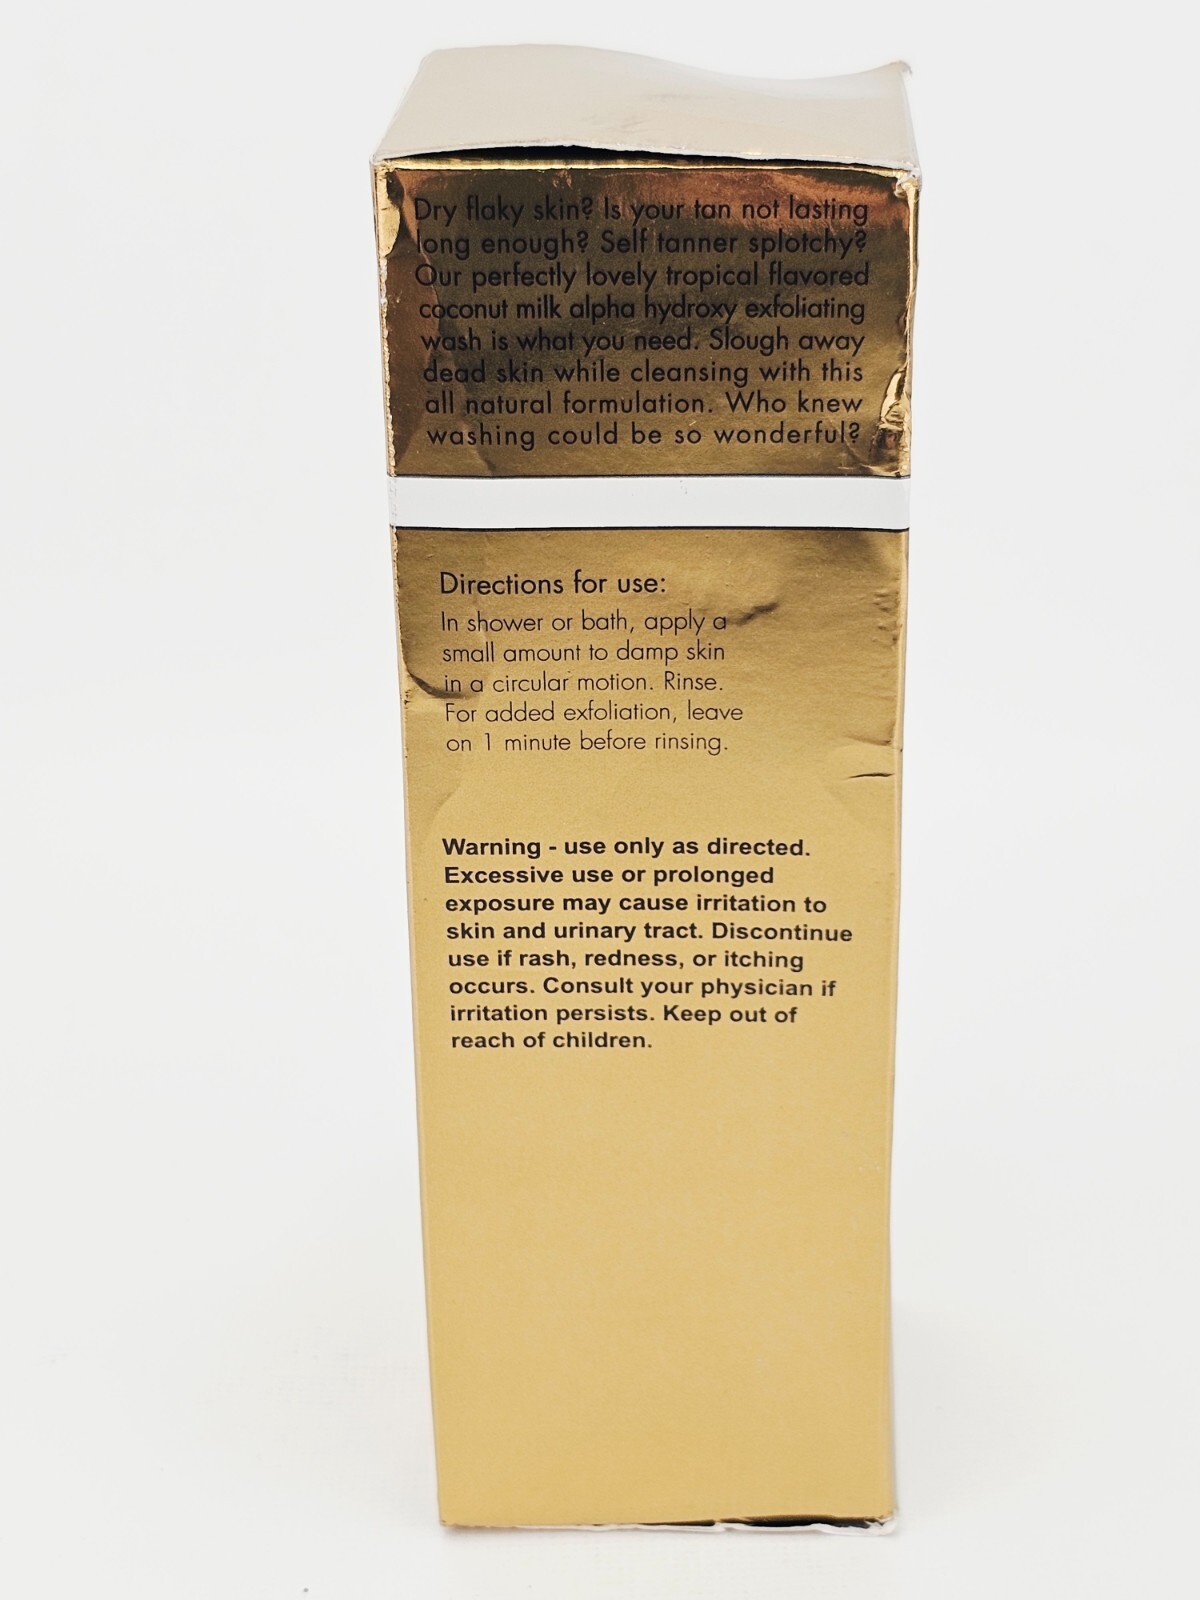 Dry flaky skin? Is your tan not lasting
long enough? Self tanner splotchy?
Our perfectly lovely tropical flavored
coconut milk alpha hydroxy exfoliating
wash is what you need. Slough away
dead skin while cleansing with this
all natural formulation. Who knew
washing could be so wonderful?
Directions for use:
In shower or bath, apply a
small amount to damp skin
in a circular motion. Rinse.
For added exfoliation, leave
on 1 minute before rinsing.
Warning - use only as directed.
Excessive use or prolonged
exposure may cause irritation to
skin and urinary tract. Discontinue
use if rash, redness, or itching
occurs. Consult your physician if
irritation persists. Keep out of
reach of children.